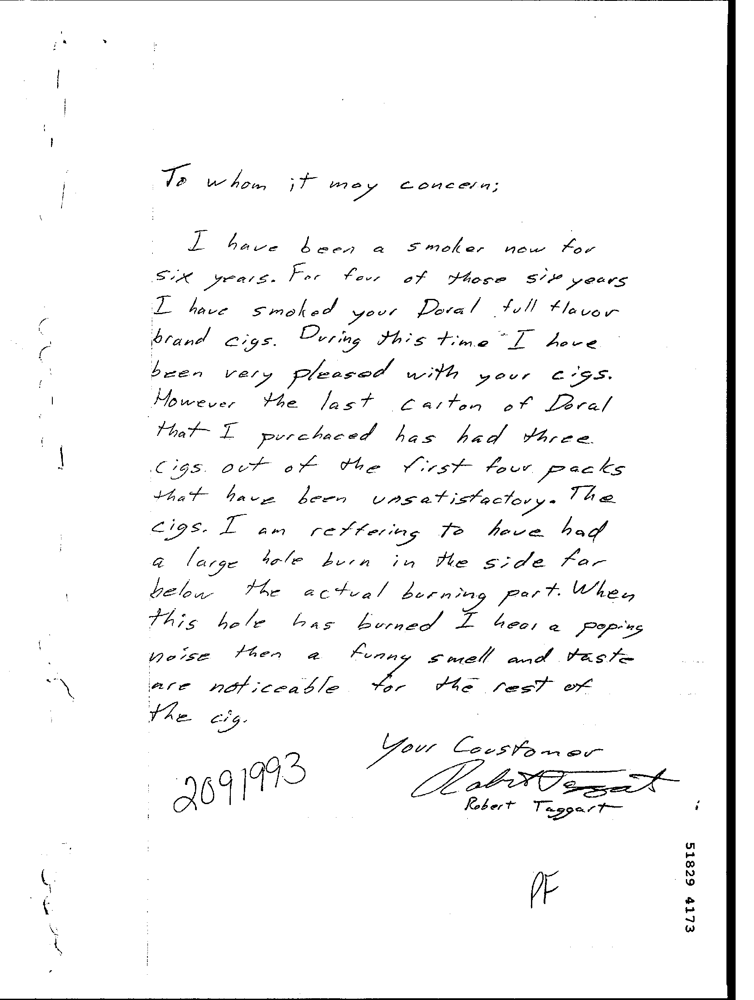 To whom it may concern;
I have been a smoker now for
six years. For four of those six years
I have smoked your Doral full flavor
brand cigs. During this time I have
been very pleased with your cigs.
However the last carton of Doral
that I purchaced has had three
cigs. out of the first four packs
that have been unsatisfactory. The
cigs. I am reffering to have had
a large hole burn in the side far
below the actual burning part. When
this hole has burned I hear a poping
noise then a funny smell and taste
are noticeable for the rest of
the cig.
Your Coustomer
Robert Taggart
Robert Taggart
2091993
PF
51829 4173